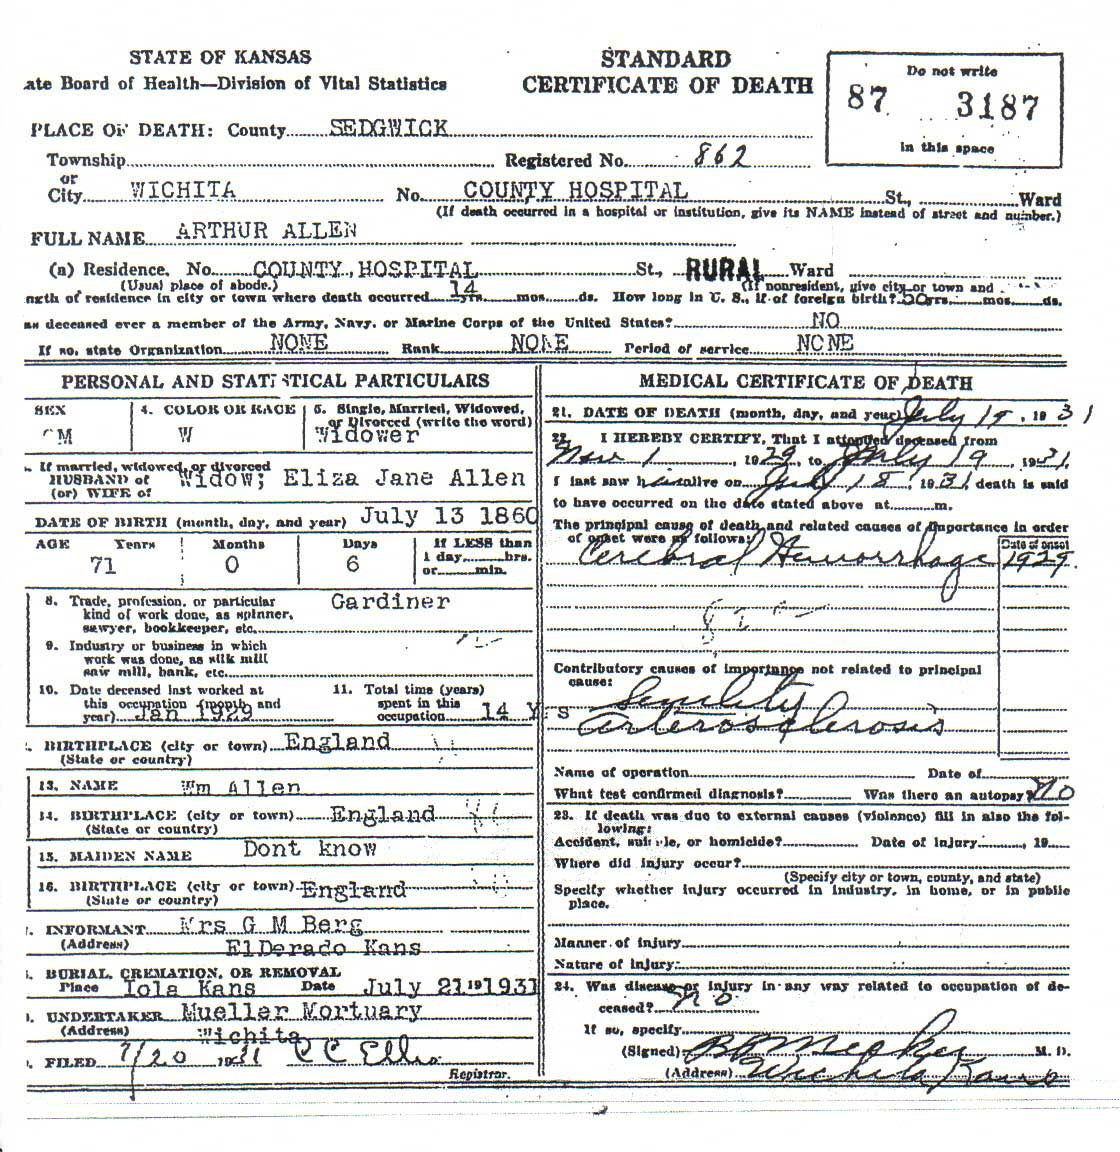 STATE OF KANSAS
ate Board of Health—Division of Vital Statistics
STANDARD
CERTIFICATE OF DEATH
Do not write
87 3187
in this space
PLACE OF DEATH: County SEDGWICK
Township Registered No. 862
or
City WICHITA No. COUNTY HOSPITAL St., Ward
(If death occurred in a hospital or institution, give its NAME instead of street and number.)
FULL NAME ARTHUR ALLEN
(a) Residence. No. COUNTY HOSPITAL St., RURAL Ward
(Usual place of abode.) (If nonresident, give city or town and
ngth of residence in city or town where death occurred 14 yrs. mos. ds. How long in U. S., if of foreign birth? 50 yrs. mos. ds.
as deceased ever a member of the Army, Navy, or Marine Corps of the United States? NO
If so, state Organization NONE Rank NONE Period of service NONE
PERSONAL AND STATISTICAL PARTICULARS
SEX 4. COLOR OR RACE 5. Single, Married, Widowed, or Divorced (write the word)
M W Widower
If married, widowed, or divorced
HUSBAND of
(or) WIFE of Widow; Eliza Jane Allen
DATE OF BIRTH (month, day, and year) July 13 1860
AGE Years Months Days If LESS than
1 day, hrs.
or min.
71 0 6
8. Trade, profession, or particular
kind of work done, as spinner,
sawyer, bookkeeper, etc. Gardiner
9. Industry or business in which
work was done, as silk mill
saw mill, bank, etc.
10. Date deceased last worked at
this occupation (month and
year) Jan 1929
11. Total time (years)
spent in this
occupation 14 Y S
BIRTHPLACE (city or town) England
(State or country)
13. NAME Wm Allen
14. BIRTHPLACE (city or town) England
(State or country)
15. MAIDEN NAME Dont know
16. BIRTHPLACE (city or town) England
(State or country)
INFORMANT Mrs G M Berg
(Address) ElDorado Kans
BURIAL, CREMATION, OR REMOVAL
Place Iola Kans Date July 21 19 1931
UNDERTAKER Mueller Mortuary
(Address) Wichita
FILED 7/20 1931 C C Ellis
Registrar.
MEDICAL CERTIFICATE OF DEATH
21. DATE OF DEATH (month, day, and year) July 19, 1931
22. I HEREBY CERTIFY, That I attended deceased from
Nov 1, 1929, to July 19, 1931
I last saw him alive on July 18, 1931, death is said
to have occurred on the date stated above at m.
The principal cause of death and related causes of importance in order
of onset were as follows: Date of onset
Cerebral Hemorrhage 1929.
Contributory causes of importance not related to principal
cause:
Senility
Arterosclerosis
Name of operation Date of
What test confirmed diagnosis? Was there an autopsy? No
23. If death was due to external causes (violence) fill in also the fol-
lowing:
Accident, suicide, or homicide? Date of injury , 19
Where did injury occur?
(Specify city or town, county, and state)
Specify whether injury occurred in industry, in home, or in public
place.
Manner of injury
Nature of injury
24. Was disease or injury in any way related to occupation of de-
ceased? No
If so, specify
(Signed) M. D.
(Address) Wichita Kans